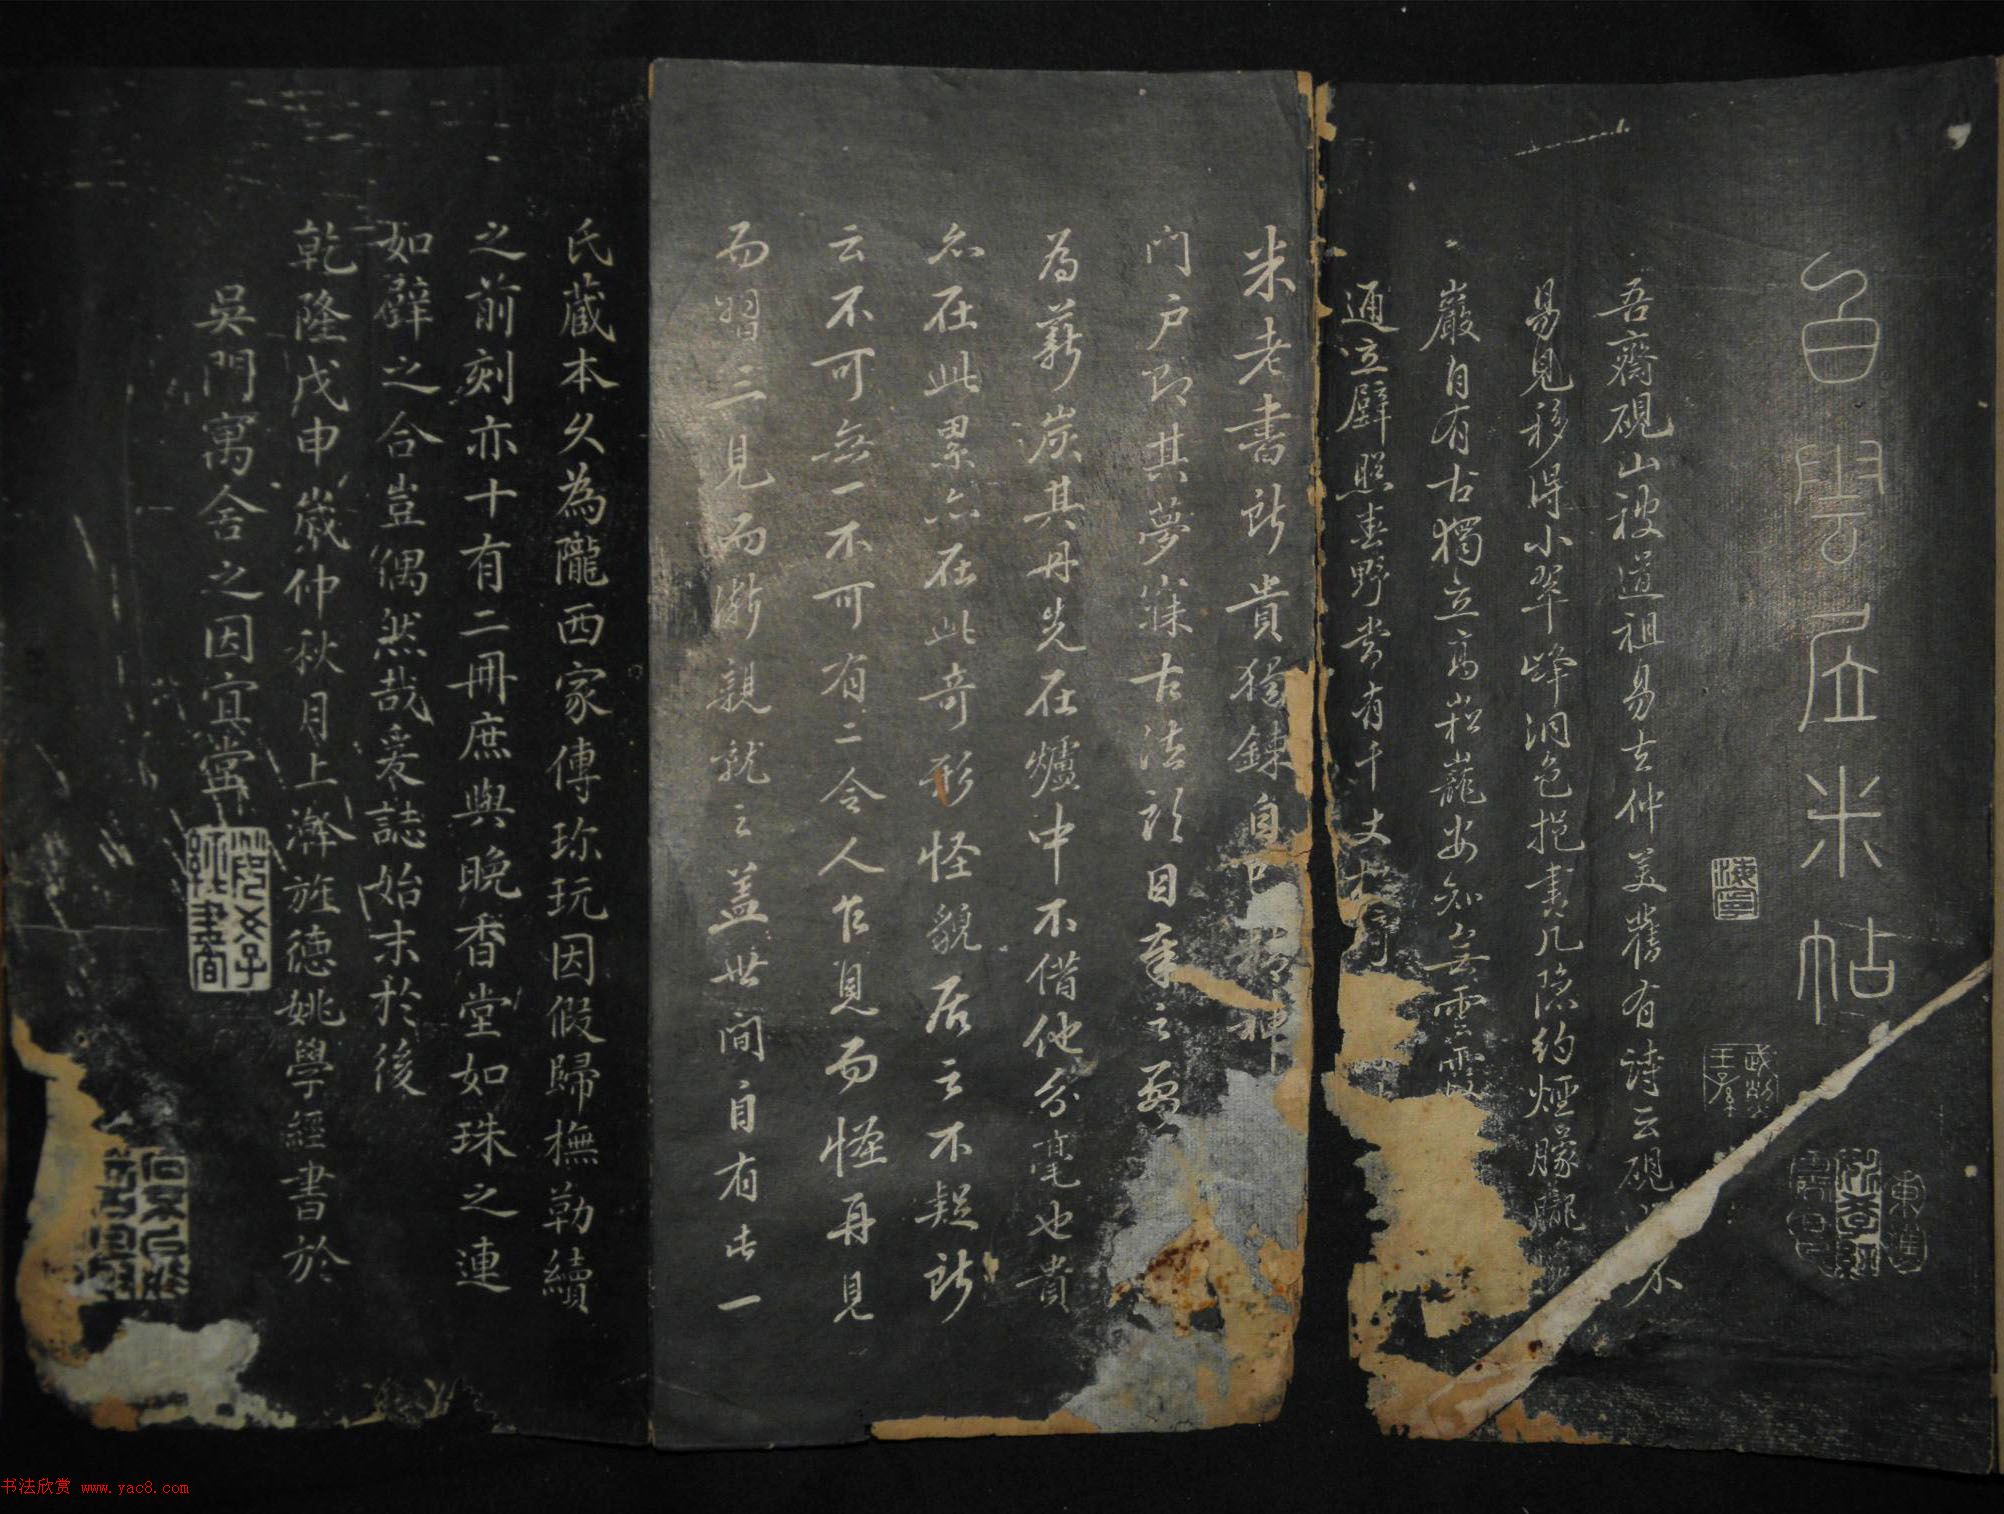 白雲居米帖
吾齋硯山被道祖易去仲美舊有詩云硯山不
易見移得小翠峰潤色挹書几隱約煙朦朧
巖自有古獨立高崧巃安知無雲霞
通立壁照春野當有千丈松
米老書所貴獨鍊自己精神
門戶即其夢寐古法觸目
為薪炭其丹先在爐中不借他分毫也貴
亦在此累亦在此奇形怪貌居之不疑所
云不可無一不可有二令人乍見而怪再見
而習三見而漸親就之蓋世間自有此一
氏藏本久為隴西家傳珎玩因假歸橅勒續
之前刻亦十有二冊庶與晚香堂如珠之連
如璧之合豈偶然哉爰誌始末於後
乾隆戊申歲仲秋月上澣旌德姚學經書於
吳門寓舍之因宜堂
书法欣赏 www.yac8.com